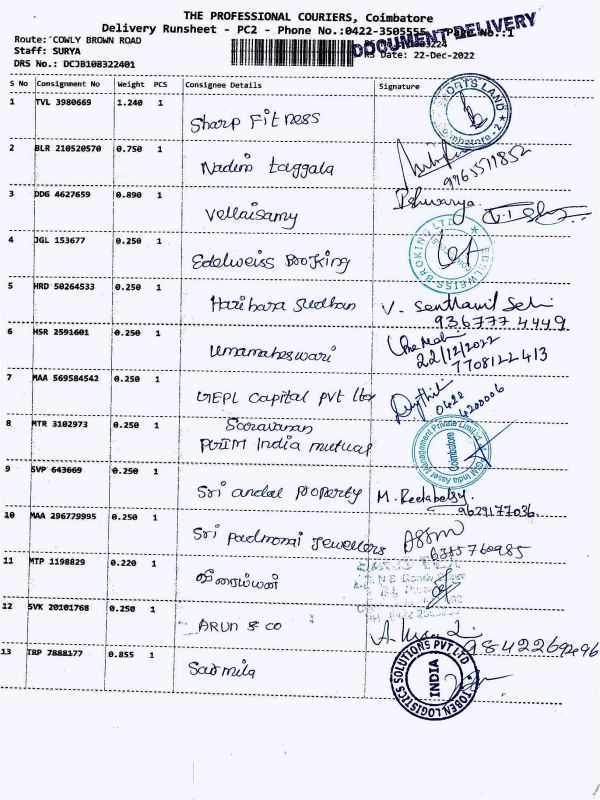 THE PROFESSIONAL COURIERS, Coimbatore
Delivery Runsheet - PC2 - Phone No.:0422-3505555 Page No.:1
DOCUMENT DELIVERY
Route: COWLY BROWN ROAD
Staff: SURYA
Date: 22-Dec-2022
DRS No.: DCJB108322401
S No Consignment No Weight PCS Consignee Details Signature
1 TVL 3980669 1.240 1 Sharp Fitness
SPORTS LAND Coimbatore - 2
2 BLR 210520570 0.750 1 Nadim taggala
9965511852
3 DDG 4627659 0.890 1 Vellaisamy Ishwarya.
4 JGL 153677 0.250 1 Edelweiss Broking
EDELWEISS BROKING LTD
5 HRD 50264533 0.250 1 Hari hara Sudhan V. Senthamil Selvi
936777 4449
6 HSR 2591601 0.250 1 Umamaheswari Uma Mah
22/12/2022
7708122413
7 MAA 569584542 0.250 1 UEPL Capital Pvt ltd
0422
4200006
8 MTR 3102973 0.250 1 Saravanan
PGIM India mutual
PGIM India Asset Management Private Limited Coimbatore
9 SVP 643669 0.250 1 Sri andal Property M. Reetabelsy.
9629177036
10 MAA 296779995 0.250 1 Sri padmorai Jewellers
6385760985
11 MTP 1198829 0.220 1
12 SVK 20101768 0.250 1 ARUN & CO
9842269696
13 TRP 7888177 0.855 1 Sarmila
TOBEN LOGISTICS SOLUTIONS PVT LTD INDIA